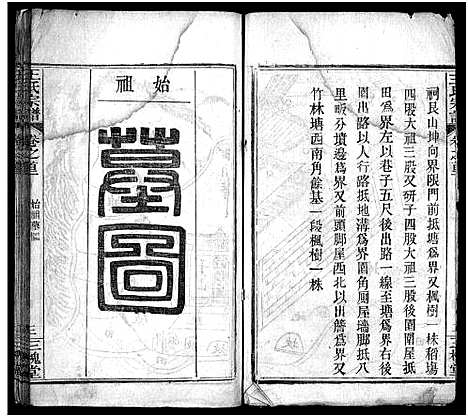 王氏宗譜
卷之首
三槐堂
祠艮山坤向界限門前抵塘為界又楓樹一株稻塲
四股大祖三股又研子四股大祖三股後園園屋抵
田為界左以巷子五尺後出路一線至塘為界右
園出路以人行路抵地溝為界園角厠屋墻脚抵八
里畈分墳邊為界又前頭脚屋西北以出簷為界又
竹林塘西南角餘基一段楓樹一株
始祖
墓圖
王氏宗譜
卷之首
始祖墓圖
三槐堂